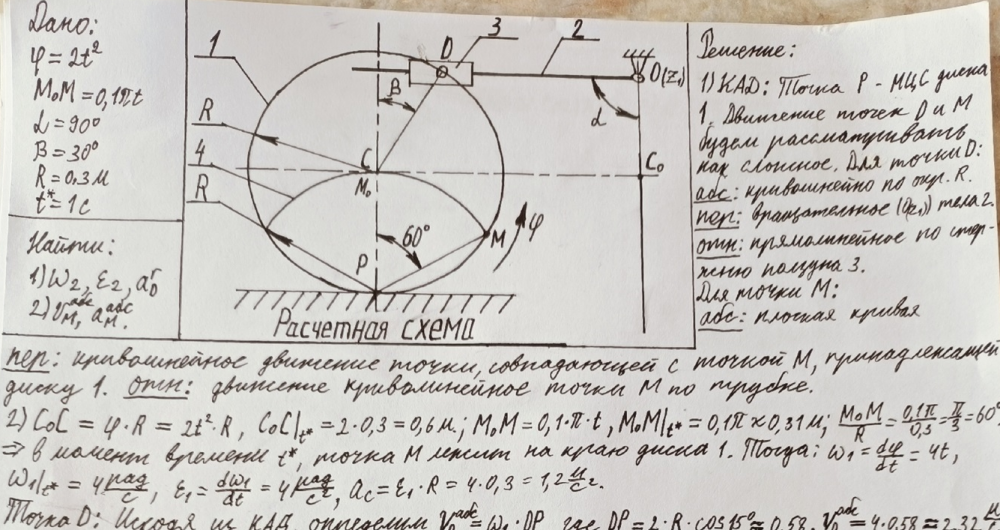 Дано:
φ = 2t²
M₀M = 0,1πt
α = 90°
β = 30°
R = 0,3 м
t* = 1 с
Найти:
1) ω₂, ε₂, a_D^r
2) v_M^абс, a_M^абс.
1
D
3
2
O(z₁)
β
α
R
4
C
M₀
C₀
R
60°
M
φ
P
Расчетная схема
Решение:
1) КАД: Точка P - МЦС диска
1. Движение точек D и M
будем рассматривать
как сложное. Для точки D:
абс: криволинейно по окр. R.
пер: вращательное (Oz₁) тела 2.
отн: прямолинейное по стер-
жню ползуна 3.
Для точки M:
абс: плоская кривая
пер: криволинейное движение точки, совпадающей с точкой M, принадлежащей
диску 1. отн: движение криволинейное точки M по трубке.
2) C₀C = φ·R = 2t²·R, C₀C|t* = 2·0,3 = 0,6 м; M₀M = 0,1·π·t, M₀M|t* = 0,1π ≈ 0,31 м; M₀M/R = 0,1π/0,3 = π/3 = 60°
⇒ в момент времени t*, точка M лежит на краю диска 1. Тогда: ω₁ = dφ/dt = 4t,
ω₁|t* = 4 рад/с, ε₁ = dω₁/dt = 4 рад/с², a_C = ε₁·R = 4·0,3 = 1,2 м/с².
Точка D: Исходя из КАД, определим v_D^абс = ω₁·DP, где DP = 2·R·cos15° ≈ 0,58. v_D^абс = 4·0,58 = 2,32